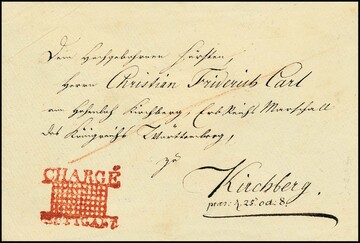 Dem Hochgebohrnen Fürsten,
Herrn Christian Friderich Carl
von Hohenloh Kirchberg, Erb Reichs Marschall
des Königreichs Württemberg,
zu
Kirchberg.
CHARGÉ
STUTGART